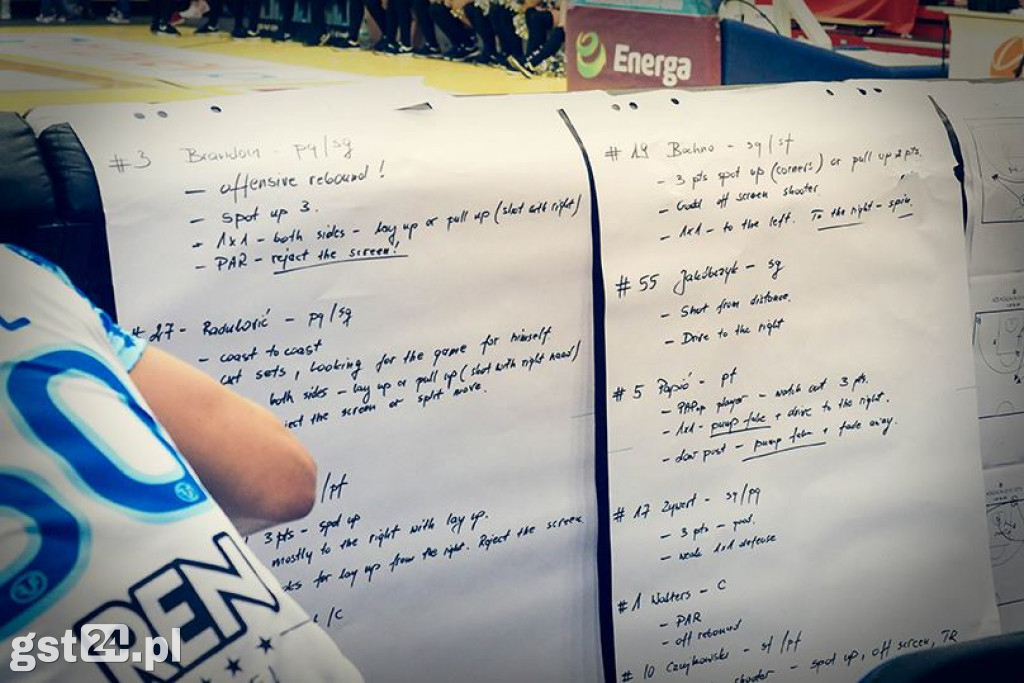 Energa
#3 Brandon - pg/sg
- offensive rebound!
- spot up 3.
- 1x1 - both sides - lay up or pull up (shot with right)
- PAR - reject the screen!
#27 - Radulović - pg/sg
- coast to coast
sets, looking for the game for himself
both sides - lay up or pull up (shot with right hand)
ject the screen or split move.
/pf
3 pts - spot up
mostly to the right with lay up.
des for lay up from the right. Reject the screen
/C
#19 Bochno - sg/sf
- 3 pts spot up (corners) or pull up 2 pts.
- Good off screen shooter
- 1x1 - to the left. To the right - spin.
#55 Jakóbczyk - sg
- Shot from distance.
- Drive to the right
#5 Papić - pf
- player - watch out 3 pts.
- 1x1 - pump fake + drive to the right.
- low post - pump fake + fade away.
#17 Zywert - sg/pg
- 3 pts - good.
- weak 1x1 defense
#1 Walters - C
- PAR
- off rebound
#10 Czujkowski - sf/pf
shooter - spot up, off screen, TR
REN
gst24.pl